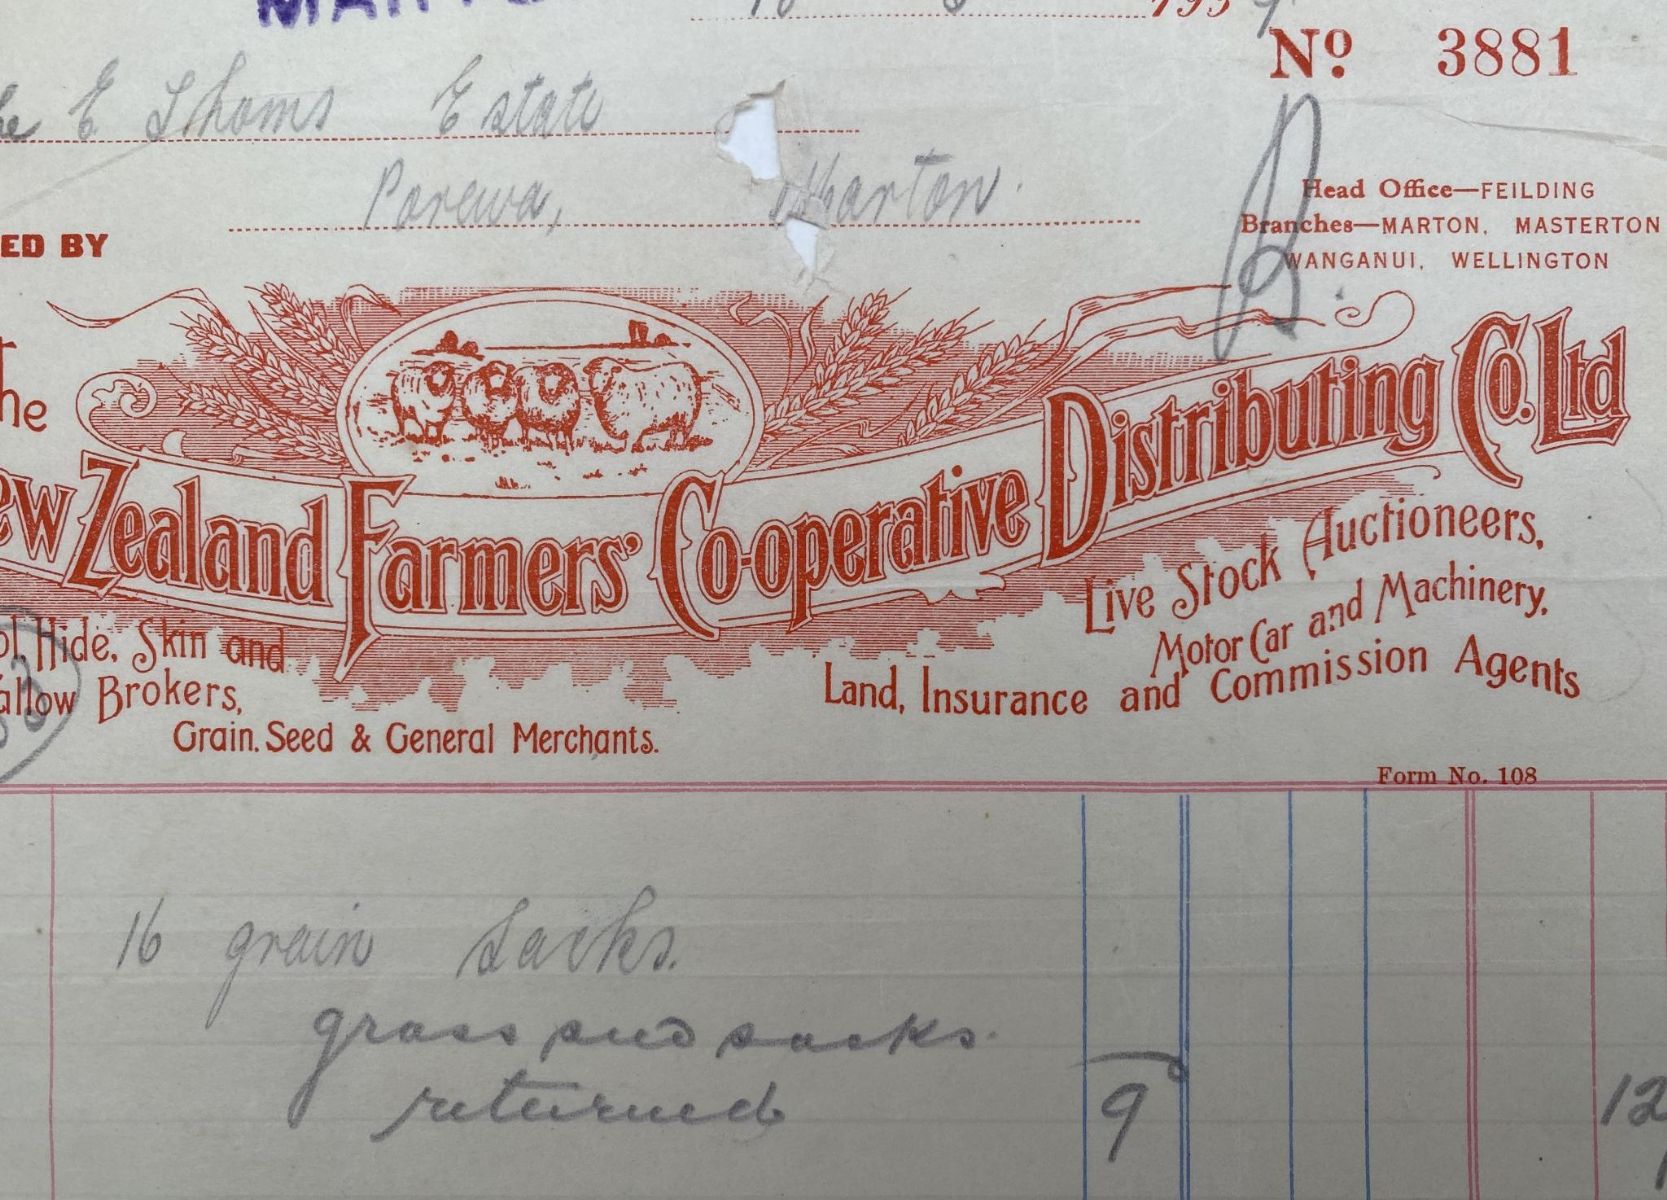 193
Nº 3881
E Thoms Estate
Porewa, Marton.
Head Office—FEILDING
Branches—MARTON, MASTERTON
WANGANUI, WELLINGTON
ED BY
The
New Zealand Farmers' Co-operative Distributing Co. Ltd
Hide, Skin and
Tallow Brokers,
Grain, Seed & General Merchants.
Live Stock Auctioneers,
Motor Car and Machinery,
Land, Insurance and Commission Agents
Form No. 108
16 grain sacks.
grass seed sacks
returned 9 12